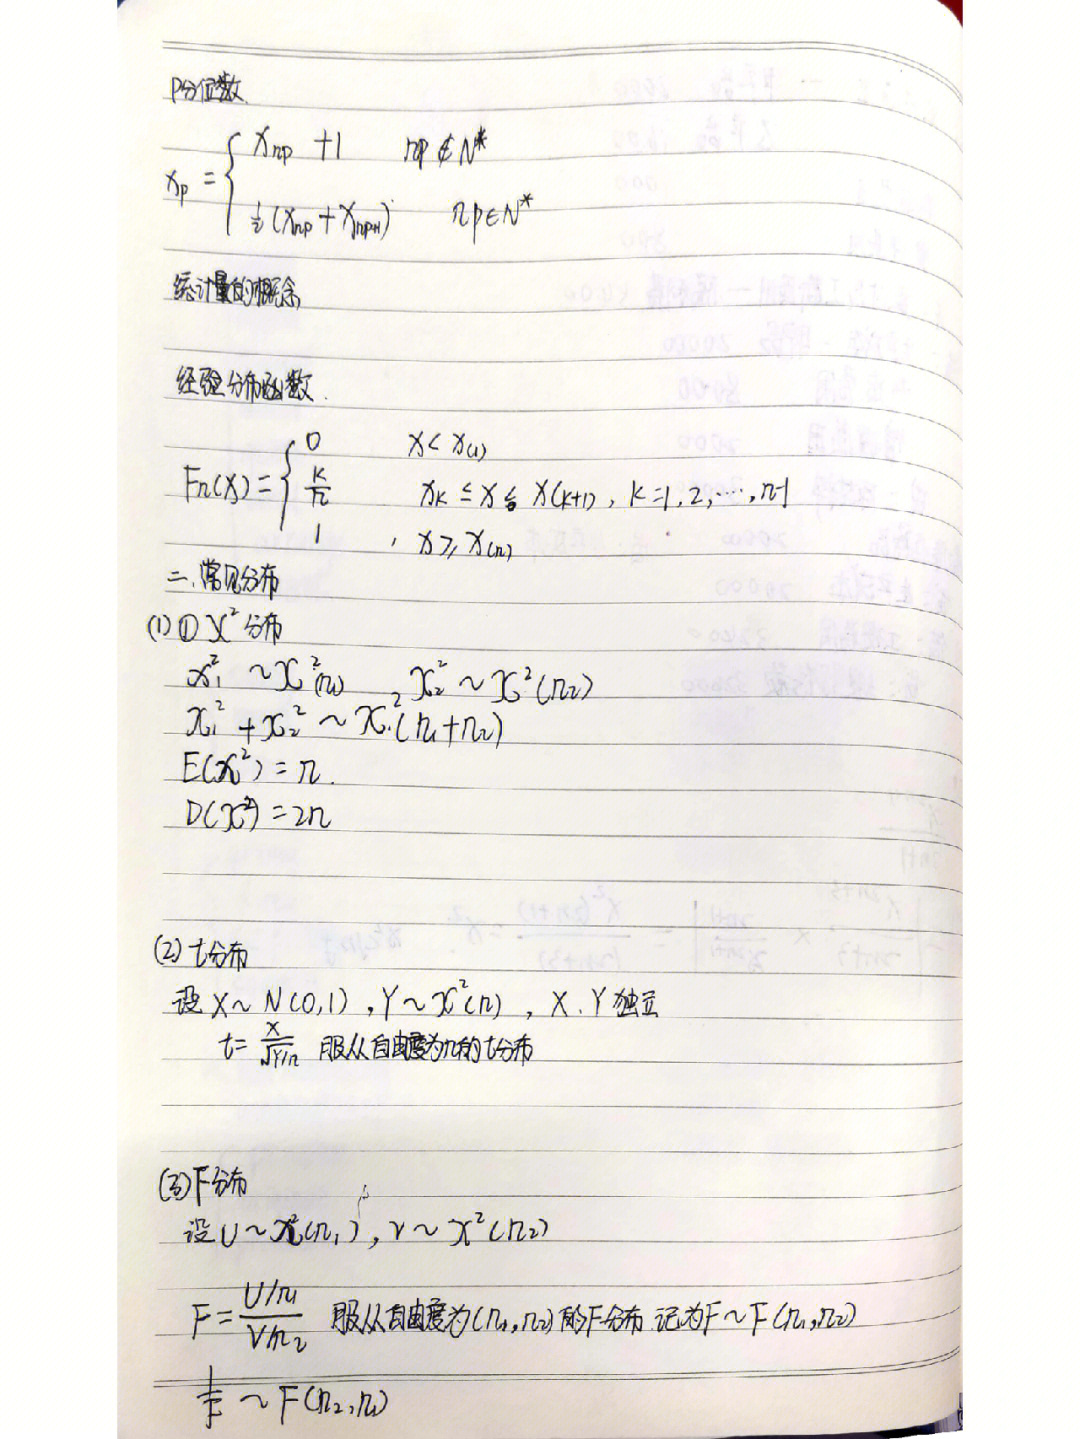 P分位数
xp = { xnp +1 np∉N*
½(xnp + xnp+1) np∈N*
统计量的概念
经验分布函数.
Fn(x) = { 0 x < x(1)
k/n xk ≤ x ≤ x(k+1), k=1,2,…,n-1
1 , x ≥ x(n)
二.常见分布
(1)① χ² 分布
χ₁² ~ χ²(n₁) , χ₂² ~ χ²(n₂)
χ₁² + χ₂² ~ χ²(n₁+n₂)
E(χ²) = n.
D(χ²) = 2n
(2) t分布
设 X ~ N(0,1) , Y ~ χ²(n) , X.Y 独立
t = X/√Y/n 服从自由度为n的t分布
(3) F分布
设 U ~ χ²(n₁) , V ~ χ²(n₂)
F = U/n₁ / V/n₂ 服从自由度为(n₁,n₂)的F分布 记为F ~ F(n₁,n₂)
1/F ~ F(n₂,n₁)